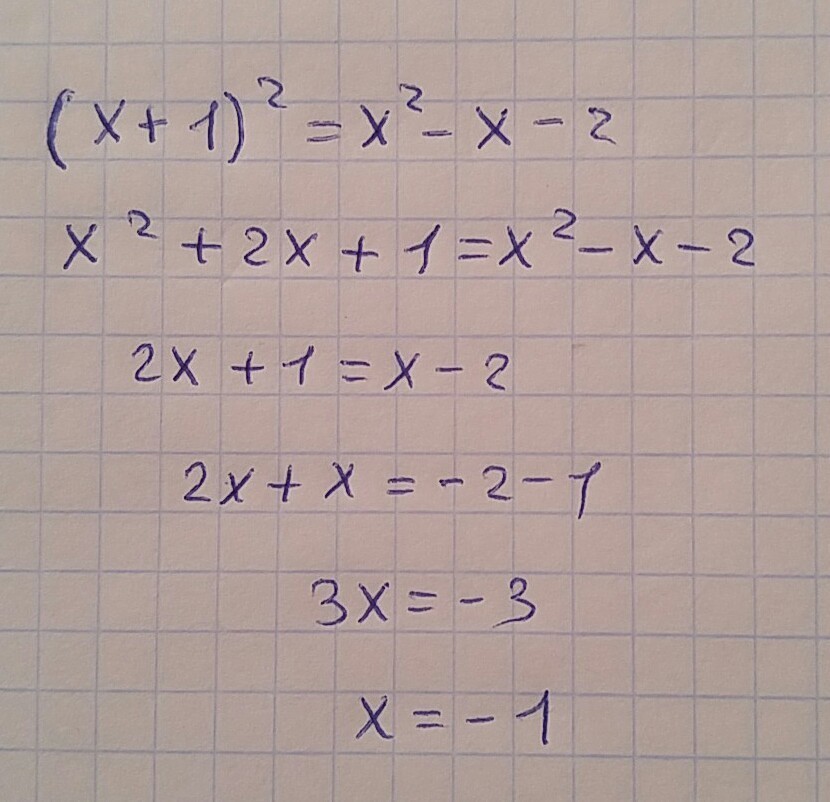 (x+1)² = x² - x - 2
x² + 2x + 1 = x² - x - 2
2x + 1 = x - 2
2x + x = -2 - 1
3x = -3
x = -1